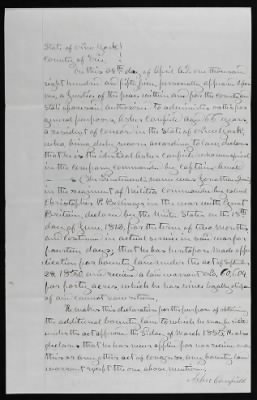 State of New York
County of Erie
On this 28th day of April A.D. one thousand
eight hundred and fifty five personally appeared before
me, a Justice of the peace within and for the County and
State aforesaid authorised to administer oaths for
general purposes, Asher Canfield aged 65 years
a resident of in the State of New York
who being duly sworn according to law declares
that he is the identical Asher Canfield who was a private
in the company commanded by captain
(his name was Jonathan
in the regiment of Militia commanded by colonel
Christopher P. Bellinger in the war with Great
Britain, declared by the United States on the 18th
day of June 1812, for the term of two months
and continued in actual service in said war for
fourteen days, that he has heretofore made application
for bounty land under the act of September
28 1850 and received a land warrant No.
for forty acres which he has since legally disposed
of and cannot now return.
He makes this declaration for the purpose of obtaining
the additional bounty land to which he may be entitled
under the act approved the 3d day of March 1855. He also
declares that he has never applied for nor received under
this or any other act of congress any bounty land
warrant except the one above mentioned.
Asher Canfield